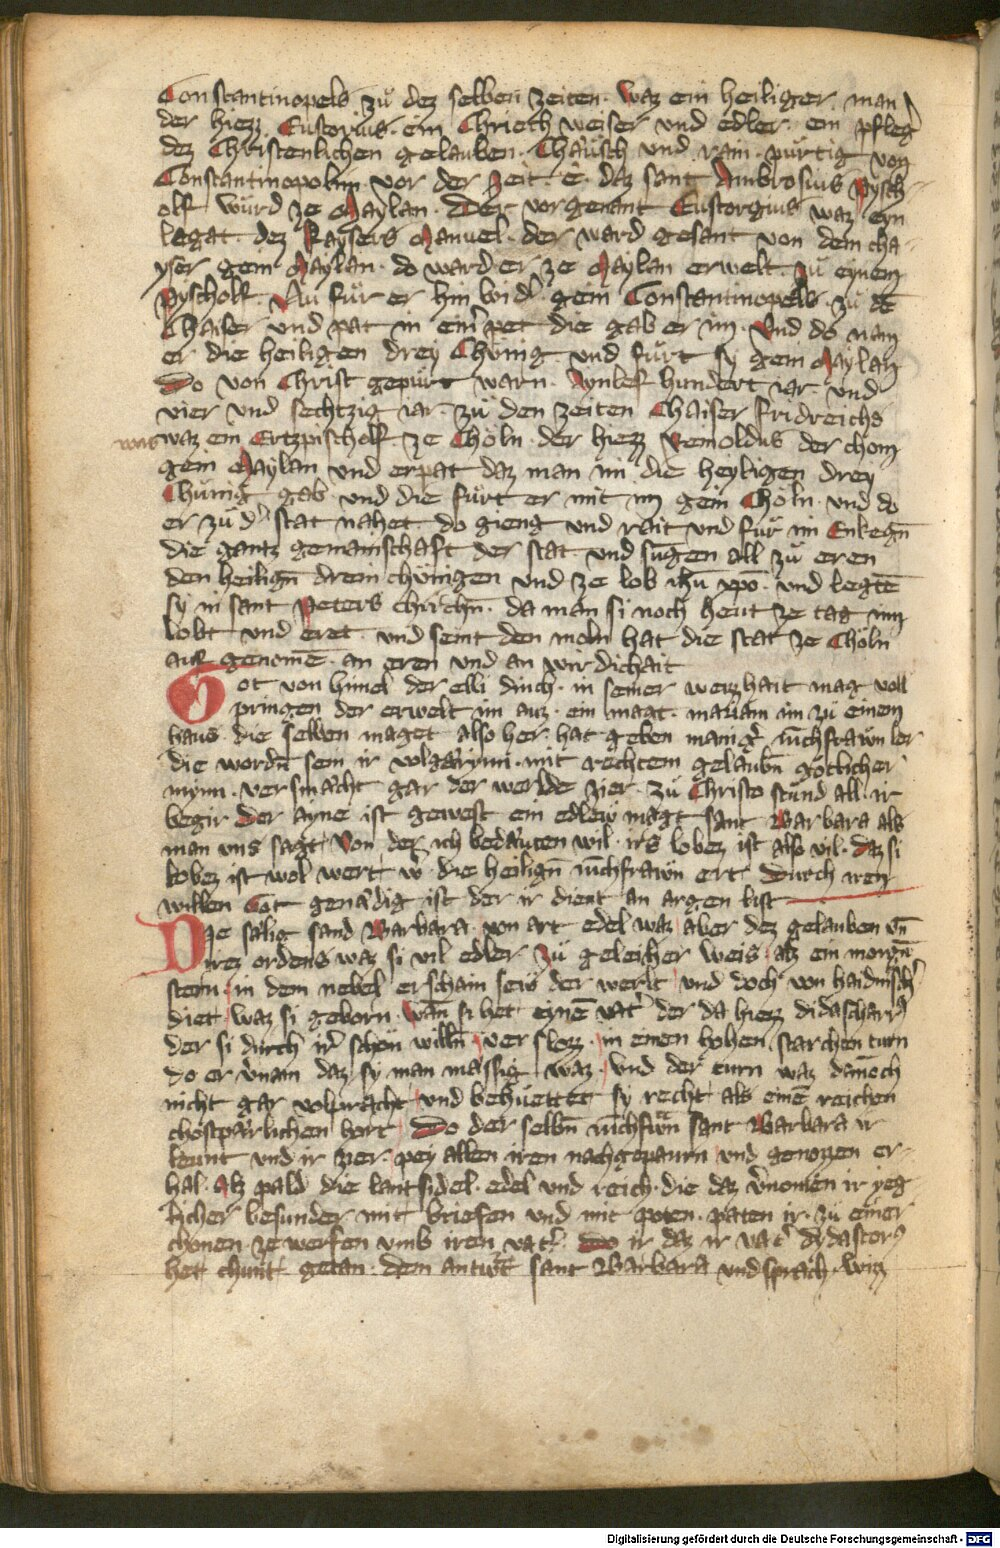 Constantinopels zů dez selben zeiten. Waz ein heiliger man
der hiezz Eustorius. ein Chriech weiser und edler. ein pfleg̾
dez Christenlichen gelauben. Chäusch und rain. pürtig von
Constantinopolim vor der zeit. E. daz sant Ambrosius Pysch-
olf würd ze Maylan. Der vorgenant Eustorgius waz eyn
legat. dez kaysers Manuel. der ward gesant von dem cha-
yser gein Maylan. do ward er ze Maylan erwelt zu eynem
Pyscholf. Nu für er hin wid̾ gein Constantinopels. zů dē
Chaiser und pat in ein̾ pet die gab er im. Und do nam
er die heiligen drey Chünig und fürt sy gein Maylan
Do von Christ gepürt warn. Aynlef hundert iar. und
vier und sechtzig iar. zů den zeiten Chaiser fridreichs
was waz ein Ertzpischolf ze Chöln. der hiezz Remoldus der chom
gein Maylan und erpat daz man im die heyligen drey
Chünig gab. und die fürt er mit im gein Chöln. und do
er zů d̾ stat nahet. do gieng und rait und für im Enkegn̄
die gantz gemainschaft der stat und sungen all zů eren
den heilign̄ drein chünigen und ze lob ihū xpō. und legtē
sy in sant Peters chirchn̄. da man si noch heut ze tag inn
lobt und eret. und seint den moln hat die stat ze Chöln
auf genomē. an eren und an wirdichait
Got von himel der elli dinch. in seiner weizhait mag voll
pringen der erwelt im auz. ein magt. mariam im zu einem
haus. die selben maget also her. hat geben manig̾ iūchfrawn ler
die wordn̄ sein ir volgärynn. mit rechtem gelaubn̄ götlicher
mynn. versmächt gar der werlde zier. zů Christo stůnd all ir
begir Der ayne ist gewest ein edlew magt sant Barbara als
man uns sagt Von der ich bedäuten wil. irs lobez ist also vil. daz si
lobez ist wol wert w̾ die heilign̄ iūchfrawn ert Durch iren
willen Got genädig ist der ir dient an argen list
Die sälig sand Barbara. von art edel waz aber dez gelauben un̄
irez ordens waz si vil edler. zů geleicher weis alz ein morgn̄
stern. in dem nebel erschain sein der werlt und doch von haidnisch̾
diet waz si geborn. wan̄ si het eynē vat̾ der da hiezz didaschar9
der si durch ir̾ schön willn̄ verslozz. in einen hohen starchen turn
do er v̾nam daz sy man mässig waz. und der turn waz dannoch
nicht gar volpracht und behüettet sy recht als einē reichen
chostpärlichen hort. Do der selbn̄ iūchfrawn̄ sant Barbara ir
leunt und ir zier pey allen iren nachgepaurn und genozzen er-
hal. Alz pald die lantsidel. edel und reich. die daz v̾nomen ir yeg
licher besunder mit briefen und mit poten. paten ir. zu einer
chonen ze werfen umb iren vat̾. Do ir daz ir vat̾ dydascor9
het chunt getan. dem antwrt̾ sant Barbara und sprach. wizz
Digitalisierung gefördert durch die Deutsche Forschungsgemeinschaft - DFG